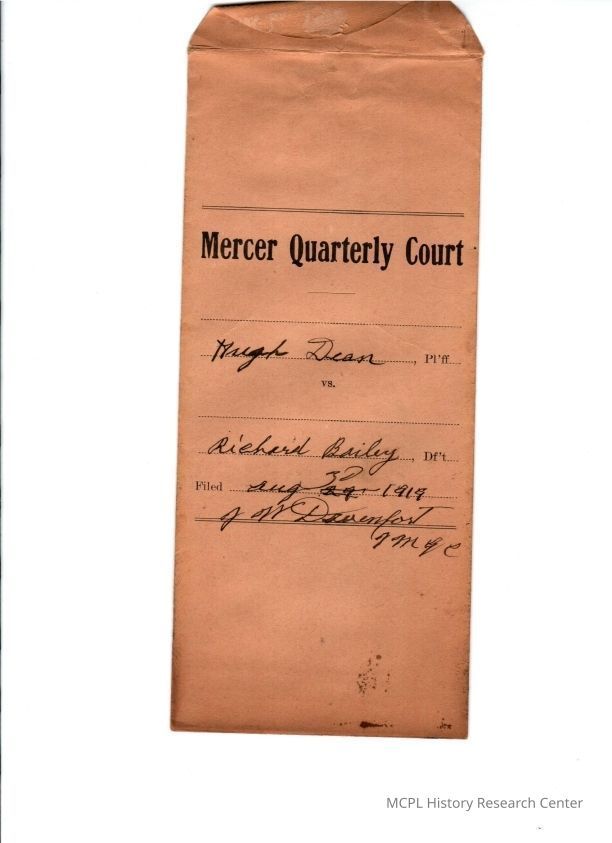 Mercer Quarterly Court
Hugh Dean, Pl'ff
vs.
Richard Bailey, Df't
30
Filed Aug 29 1919
J W Davenport
J M Q C
MCPL History Research Center